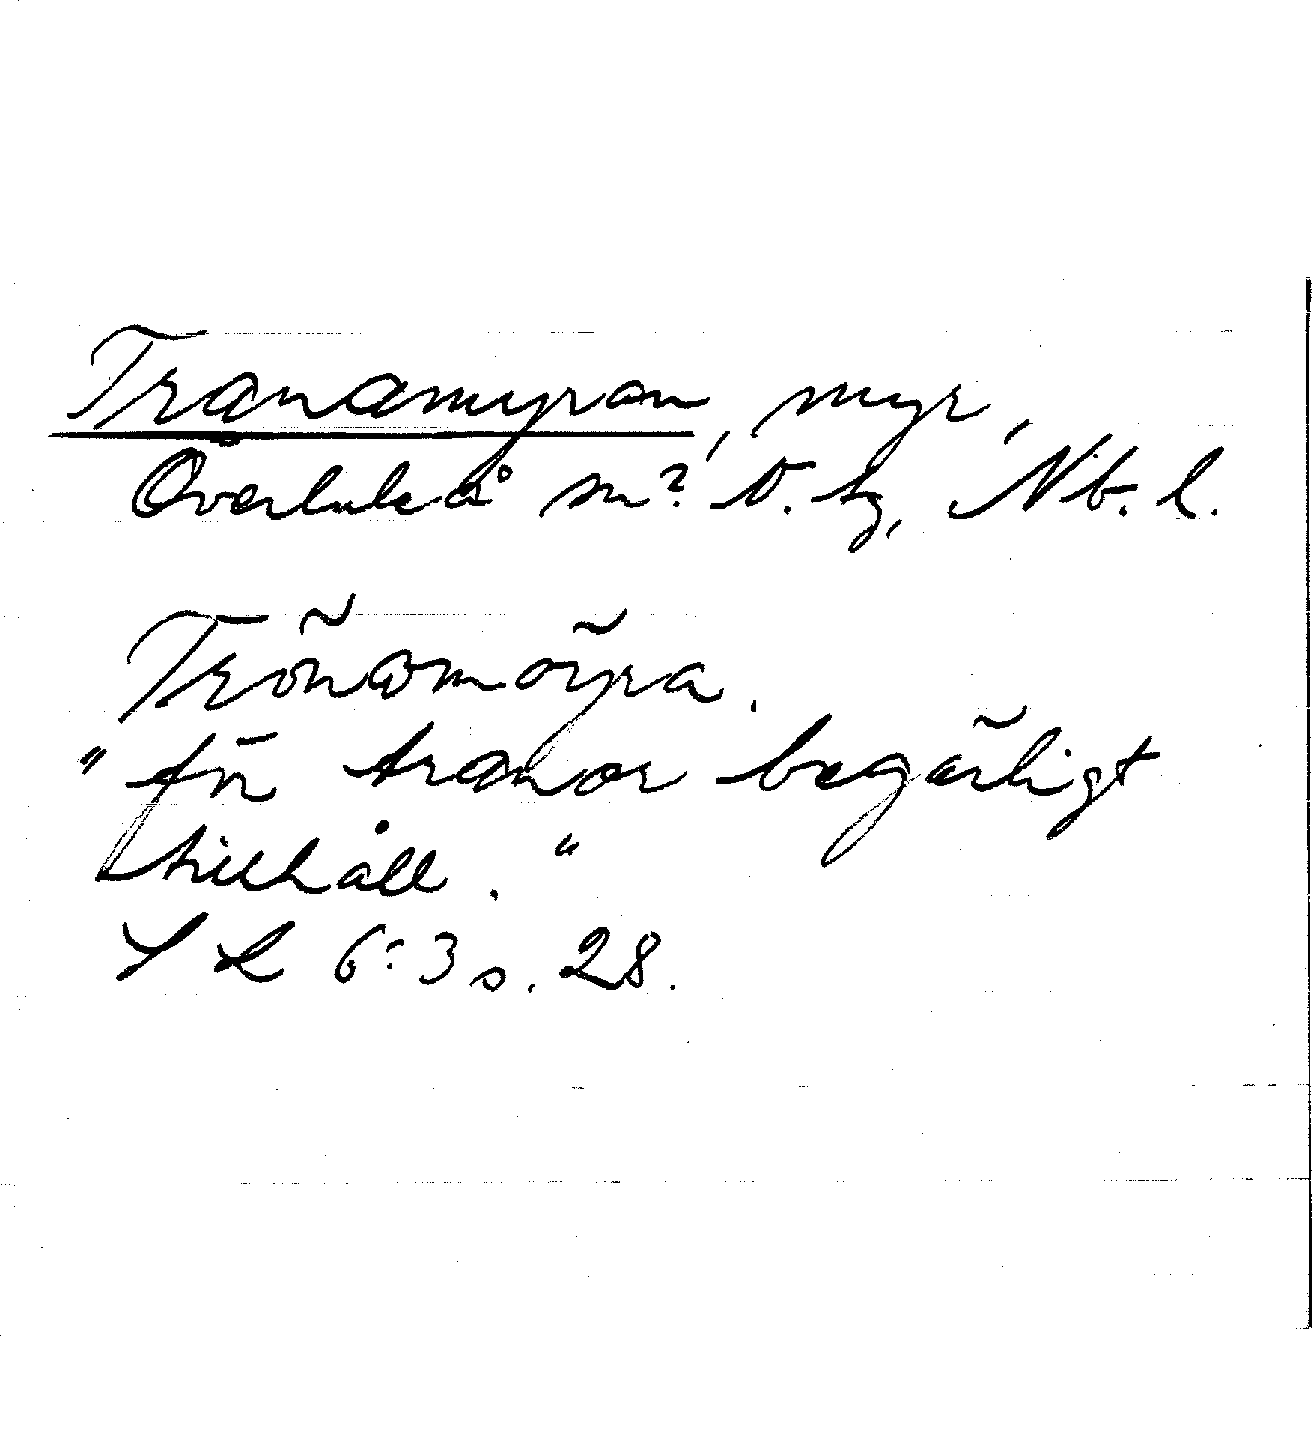 Tranamyran, myr,
Överluleå sn? N. tg, Nb. l.
Trönamöyra.
"för tranor begärligt
tillhåll."
S L 6:3 s. 28.